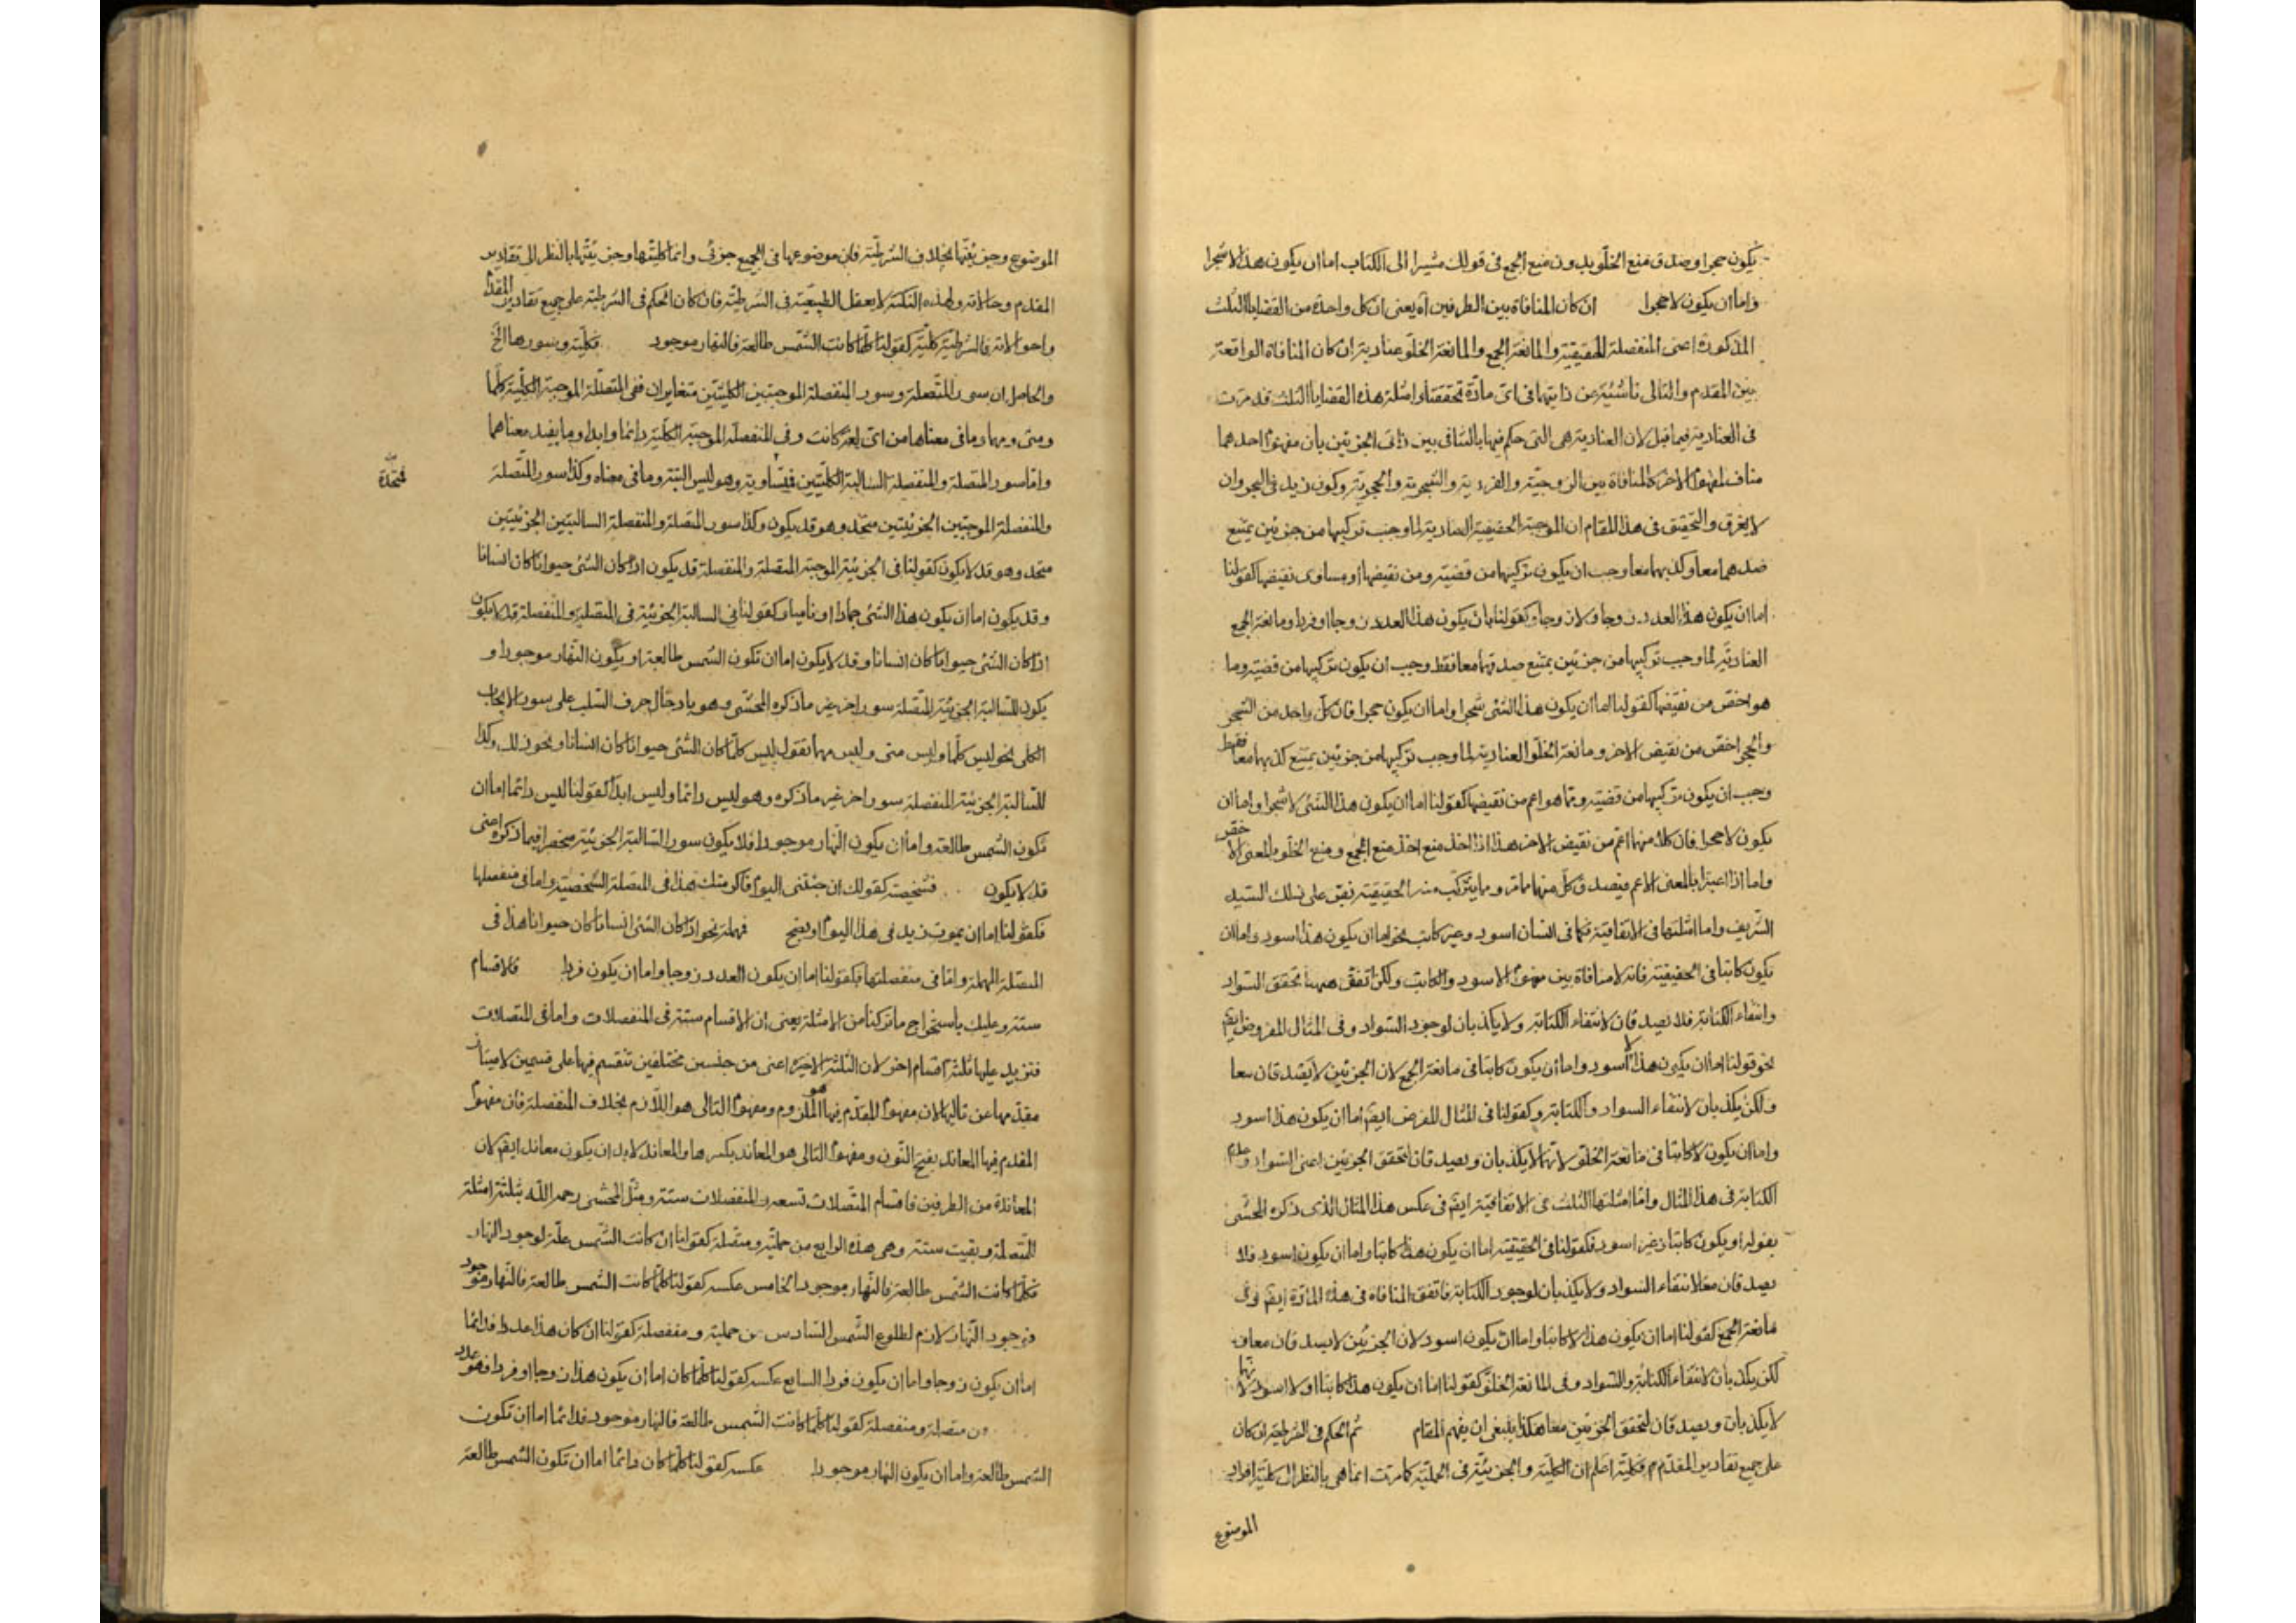 يكون حجرا وصدق منع الخلو بدون منع الجمع فى قولك مشيرا الى الكتاب اما ان يكون هذا لا شجرا
واما ان يكون لا حجرا ان كان المنافاة بين الطرفين آه يعنى ان كل واحدة من القضايا الثلث
المذكورة اعنى المنفصلة الحقيقية والمانعة الجمع والمانعة الخلو عنادية ان كان المنافاة الواقعة
بين المقدم والتالى ناشئية عن ذاتيهما فى اى مادة تحققتا وامثلة هذه القضايا الثلث قد مرت
فى العنادية فيما قبل لان العنادية هى التى حكم فيها بالتنافى بين ذاتى الجزئين بان مفهوم احدهما
مناف لمفهوم الاخر كالمنافاة بين الزوجية والفردية والشجرية والحجرية وكون زيد فى البحر وان
لا يغرق والتحقيق فى هذا المقام ان الموجبة الحقيقية العنادية لما وجب تركيبها من جزئين يمتنع
صدهما معا وكذبهما معا وجب ان يكون تركيبها من قضية ومن نقيضها او مساوى نقيضها كقولنا
اما ان يكون هذا العدد زوجا ولا زوجا وكقولنا اما ان يكون هذا العدد زوجا او فردا ومانعة الجمع
العنادية لما وجب تركيبها من جزئين يمتنع صدقهما معا فقط وجب ان يكون تركيبها من قضية وما
هو اخص من نقيضها كقولنا اما ان يكون هذا الشئ شجرا واما ان يكون حجرا فان كل واحد من الشجر
والحجر اخص من نقيض الاخر ومانعة الخلو العنادية لما وجب تركيبها من جزئين يمتنع كذبهما معا فقط
وجب ان يكون تركيبها من قضية ومما هو اعم من نقيضها كقولنا اما ان يكون هذا الشئ لا شجرا واما ان
يكون لا حجرا فان كلا منهما اعم من نقيض الاخر هذا اذا اخذ منع الجمع ومنع الخلو بالمعنى الاخص
واما اذا اعتبرا بالمعنى الاعم فيصدق كل منهما مامر وما يتركب منه الحقيقية نص على ذلك السيد
الشريف واما امثلتها فى الاتفاقية فكما فى انسان اسود وغير كاتب نحو اما ان يكون هذا اسود واما ان
يكون كاتبا فى الحقيقية فانه لا منافاة بين مفهوم الاسود والكاتب ولكن اتفق ههنا تحقق السواد
وانتفاء الكتابة فلا يصدقان لانتفاء الكتابة ولا يكذبان لوجود السواد وفى المثال المفروض ايض
نحو قولنا اما ان يكون هذا لا اسود واما ان يكون كاتبا فى مانعة الجمع لان الجزئين لا يصدقان معا
ولكن يكذبان لانتفاء السواد والكتابة وكقولنا فى المثال المفرض ايض اما ان يكون هذا اسود
واما ان يكون لا كاتبا فى مانعة الخلو لانهما لا يكذبان ويصدقان لتحقق الجزئين اعنى السواد وعدم
الكتابة فى هذا المثال واما امثلتها الثلث فى الاتفاقية ايض فى عكس هذا المثال الذى ذكره المحشى
بقوله او يكون كاتبا وغير اسود فكقولنا فى الحقيقية اما ان يكون هذا كاتبا واما ان يكون اسود فلا
يصدقان معا لانتفاء السواد ولا يكذبان لوجود الكتابة فاتفق المنافاة فى هذه المادة ايض وفى
مانعة الجمع كقولنا اما ان يكون هذا لا كاتبا واما ان يكون اسود لان الجزئين لا يصدقان معا
لكن يكذبان لانتفاء الكتابة والسواد وفى المانعة الخلو كقولنا اما ان يكون هذا كاتبا او لا اسود لانهما
لا يكذبان ويصدقان لتحقق الجزئين معا هكذا ينبغى ان يفهم المقام ثم الحكم فى الشرطية ان كان
على جميع تقادير المقدم فكلية اعلم ان الكلية والجزئية فى الحملية كما مرت انما هى بالنظر الى كلية افراد
الموضوع
الموضوع وجزئيتها بخلاف الشرطية فان موضوعها فى الجميع جزئى وانما كليتها وجزئيتها بالنظر الى تقادير
المقدم وحالاته ولهذه النكتة لا يعقل الطبيعية فى الشرطية فان كان الحكم فى الشرطية على جميع تقادير المقدم
واحوالاته فالشرطية كلية كقولنا كلما كانت الشمس طالعة فالنهار موجود فكلية وسورها الخ
والحاصل ان سور المتصلة وسور المنفصلة الموجبتين الكليتين متغايران ففى المتصلة الموجبة الكلية كلما
ومتى ومهما وما فى معناها من اى لغة كانت وفى المنفصلة الموجبة الكلية دائما وابدا وما يفيد معناهما
واما سور المتصلة والمنفصلة السالبة الكليتين فيتساوية وهو ليس البتة وما فى معناه وكذا سور المتصلة
متحدة
والمنفصلة الموجبتين الجزئيتين متحد وهو قد يكون وكذا سور المتصلة والمنفصلة السالبتين الجزئيتين
متحد وهو قد لا يكون كقولنا فى الجزئية الموجبة المتصلة والمنفصلة قد يكون اذا كان الشئ حيوانا كان انسانا
وقد يكون اما ان يكون هذا الشئ جمادا او ناميا وكقولنا فى السالبة الجزئية فى المتصلة والمنفصلة قد لا يكون
اذا كان الشئ حيوانا كان انسانا وقد لا يكون اما ان تكون الشمس طالعة او يكون النهار موجودا و
يكون للسالبة الجزئية المتصلة سور اخر غير ما ذكره المحشى وهو بادخال حرف السلب على سور الايجاب
الكلى نحو ليس كلما وليس متى وليس مهما تقول ليس كلما كان الشئ حيوانا كان انسانا ونحو ذلك وكذا
للسالبة الجزئية المنفصلة سور اخر غير ما ذكره وهو ليس دائما وليس ابدا كقولنا ليس دائما اما ان
تكون الشمس طالعة واما ان يكون النهار موجودا فلا يكون سور السالبة الجزئية منحصرا فيما ذكره اعنى
قد لا يكون فشخصية كقولك ان جئتنى اليوم فاكرمتك هذا فى المتصلة الشخصية واما فى منفصلها
فكقولنا اما ان يموت زيد فى هذا اليوم او يصح فمهملة نحو اذا كان الشئ انسانا كان حيوانا هذا فى
المتصلة المهملة واما فى منفصلتها فكقولنا اما ان يكون العدد زوجا واما ان يكون فردا فالاقسام
ستة وعليك باستخراج ما تركنا من الامثلة يعنى ان الاقسام ستة فى المنفصلات واما فى المتصلات
فتزيد عليها ثلثة اقسام اخر لان الثلثة الاخيرة اعنى من جنسين مختلفين تنقسم فيها على قسمين لامتياز
مقدمها عن تاليها لان مفهوم المقدم فيها هو الملزوم ومفهوم التالى هو اللازم بخلاف المنفصلة فان مفهوم
المقدم فيها المعاند بفتح النون ومفهوم التالى هو المعاند بكسرها والمعاند لابد ان يكون معاندا ايض لان
المعاندة من الطرفين فاقسام المتصلات تسعة والمنفصلات ستة ومثل المحشى رحمه الله بثلثة امثلة
للمتصلة وبقيت ستة وهى هذه الرابع من حملية ومتصلة كقولنا ان كانت الشمس علة لوجود النهار
فكلما كانت الشمس طالعة فالنهار موجود الخامس عكسه كقولنا كلما كانت الشمس طالعة فالنهار موجود
فوجود النهار لازم لطلوع الشمس السادس من حملية ومنفصلة كقولنا ان كان هذا عددا فدائما
اما ان يكون زوجا واما ان يكون فردا السابع عكسه كقولنا كلما كان اما ان يكون هذا زوجا او فردا فهو عدد
من متصلة ومنفصلة كقولنا كلما كانت الشمس طالعة فالنهار موجود فدائما اما ان تكون
الشمس طالعة واما ان يكون النهار موجودا عكسه كقولنا كلما كان دائما اما ان تكون الشمس طالعة